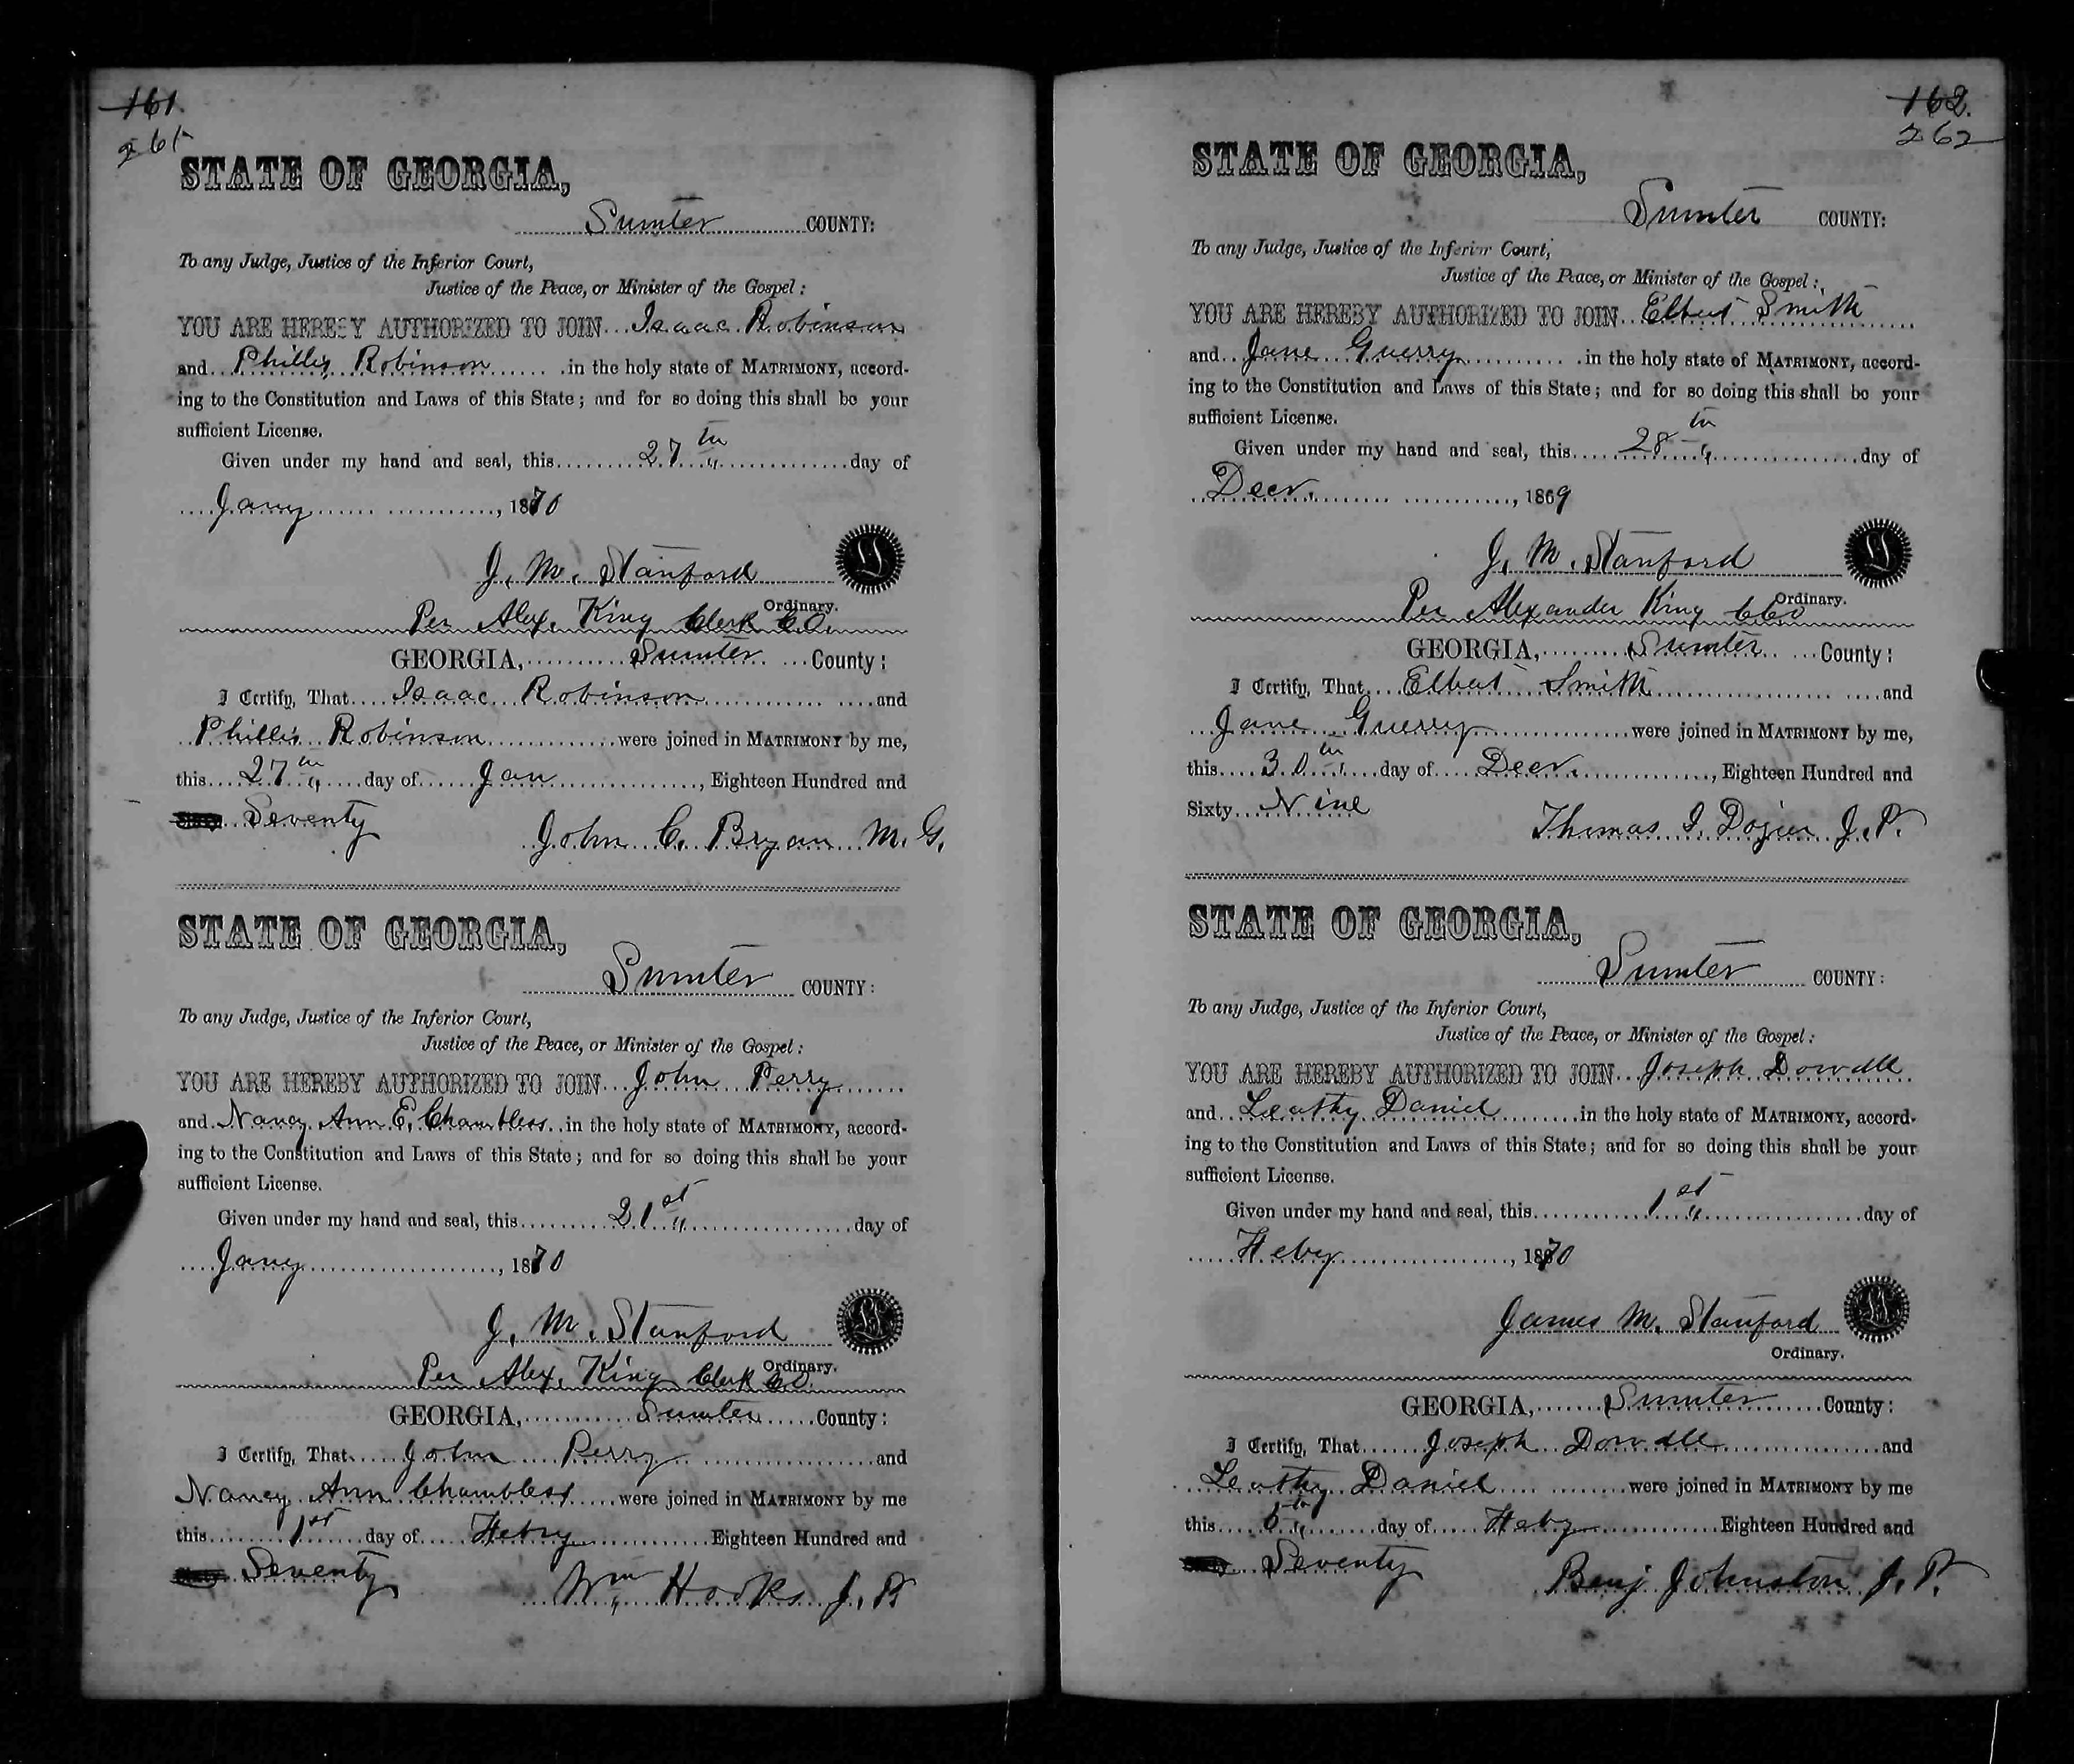 161.
261
STATE OF GEORGIA,
Sumter COUNTY:
To any Judge, Justice of the Inferior Court,
Justice of the Peace, or Minister of the Gospel:
YOU ARE HEREBY AUTHORIZED TO JOIN Isaac Robinson
and Phillis Robinson in the holy state of MATRIMONY, accord-
ing to the Constitution and Laws of this State; and for so doing this shall be your
sufficient License.
Given under my hand and seal, this 27th day of
Jany, 1870
J. M. Stanford
Ordinary.
Per Alex. King Clerk C.O.
GEORGIA, Sumter County:
I Certify, That Isaac Robinson and
Phillis Robinson were joined in MATRIMONY by me,
this 27th day of Jan, Eighteen Hundred and
Seventy John C. Bryan M.G.
STATE OF GEORGIA,
Sumter COUNTY:
To any Judge, Justice of the Inferior Court,
Justice of the Peace, or Minister of the Gospel:
YOU ARE HEREBY AUTHORIZED TO JOIN John Perry
and Nancy Ann E. Chambless in the holy state of MATRIMONY, accord-
ing to the Constitution and Laws of this State; and for so doing this shall be your
sufficient License.
Given under my hand and seal, this 21st day of
Jany, 1870
J. M. Stanford
Ordinary.
Per Alex. King Clerk C.O.
GEORGIA, Sumter County:
I Certify, That John Perry and
Nancy Ann Chambless were joined in MATRIMONY by me
this 1st day of Febry Eighteen Hundred and
Seventy Wm Hooks J.P
162.
262
STATE OF GEORGIA,
Sumter COUNTY:
To any Judge, Justice of the Inferior Court,
Justice of the Peace, or Minister of the Gospel:
YOU ARE HEREBY AUTHORIZED TO JOIN Elbert Smith
and Jane Guerry in the holy state of MATRIMONY, accord-
ing to the Constitution and Laws of this State; and for so doing this shall be your
sufficient License.
Given under my hand and seal, this 28th day of
Decr., 1869
J. M. Stanford
Ordinary.
Per Alexander King CCO
GEORGIA, Sumter County:
I Certify, That Elbert Smith and
Jane Guerry were joined in MATRIMONY by me,
this 30th day of Decr., Eighteen Hundred and
Sixty Nine Thomas I. Dozier J.P.
STATE OF GEORGIA,
Sumter COUNTY:
To any Judge, Justice of the Inferior Court,
Justice of the Peace, or Minister of the Gospel:
YOU ARE HEREBY AUTHORIZED TO JOIN Joseph Dowdle
and Leathy Daniel in the holy state of MATRIMONY, accord-
ing to the Constitution and Laws of this State; and for so doing this shall be your
sufficient License.
Given under my hand and seal, this 1st day of
Feby, 1870
James M. Stanford
Ordinary.
GEORGIA, Sumter County:
I Certify, That Joseph Dowdle and
Leathy Daniel were joined in MATRIMONY by me
this 6th day of Feby Eighteen Hundred and
Seventy Benj Johnston J.P.